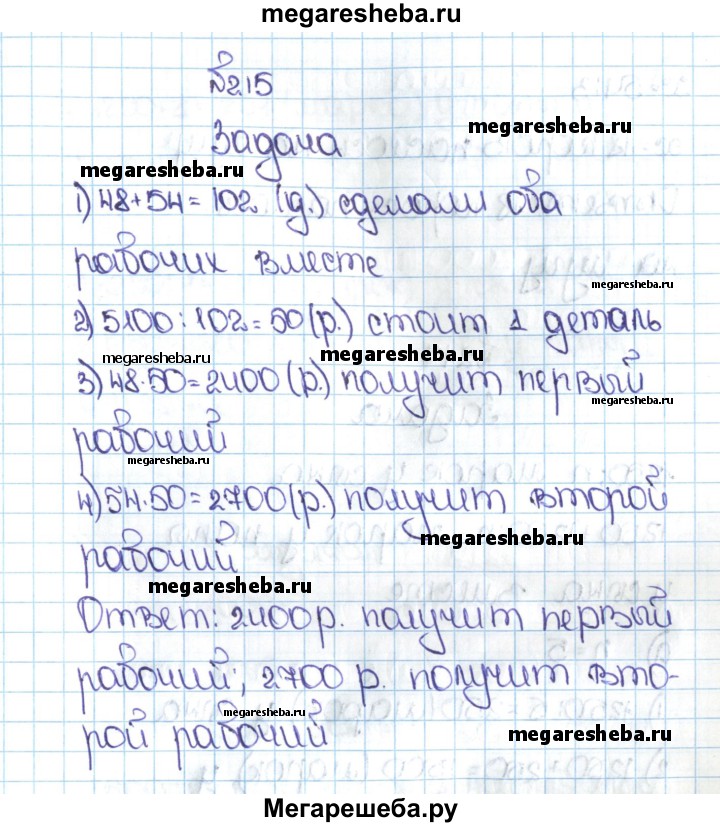 megaresheba.ru
№215
Задача
megaresheba.ru
megaresheba.ru
1) 48+54=102 (д.) сделали оба
рабочих вместе
megaresheba.ru
2) 5100:102=50(р.) стоит 1 деталь
megaresheba.ru
megaresheba.ru
3) 48·50=2400(р.) получит первый
megaresheba.ru
рабочий
megaresheba.ru
4) 54·50=2700(р.) получит второй
megaresheba.ru
рабочий
megaresheba.ru
Ответ: 2400р. получит первый
рабочий; 2700 р. получит вто-
megaresheba.ru
рой рабочий
megaresheba.ru
Мегарешеба.ру